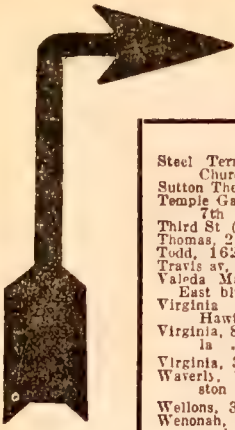 Steel Terr
Churc
Sutton The
Temple Ga
7th
Third St (
Thomas, 2
Todd, 162
Travis av,
Valeda Ma
East bl
Virginia
Hawt
Virginia, 8
la
Virginia, 3
Waverly,
ston
Wellons, 3
Wenonah,